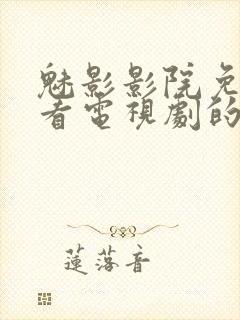 魅影影院免
看電視劇的
蓮落音